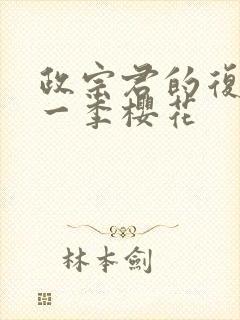 政宗君的復
一季櫻花
林本劍